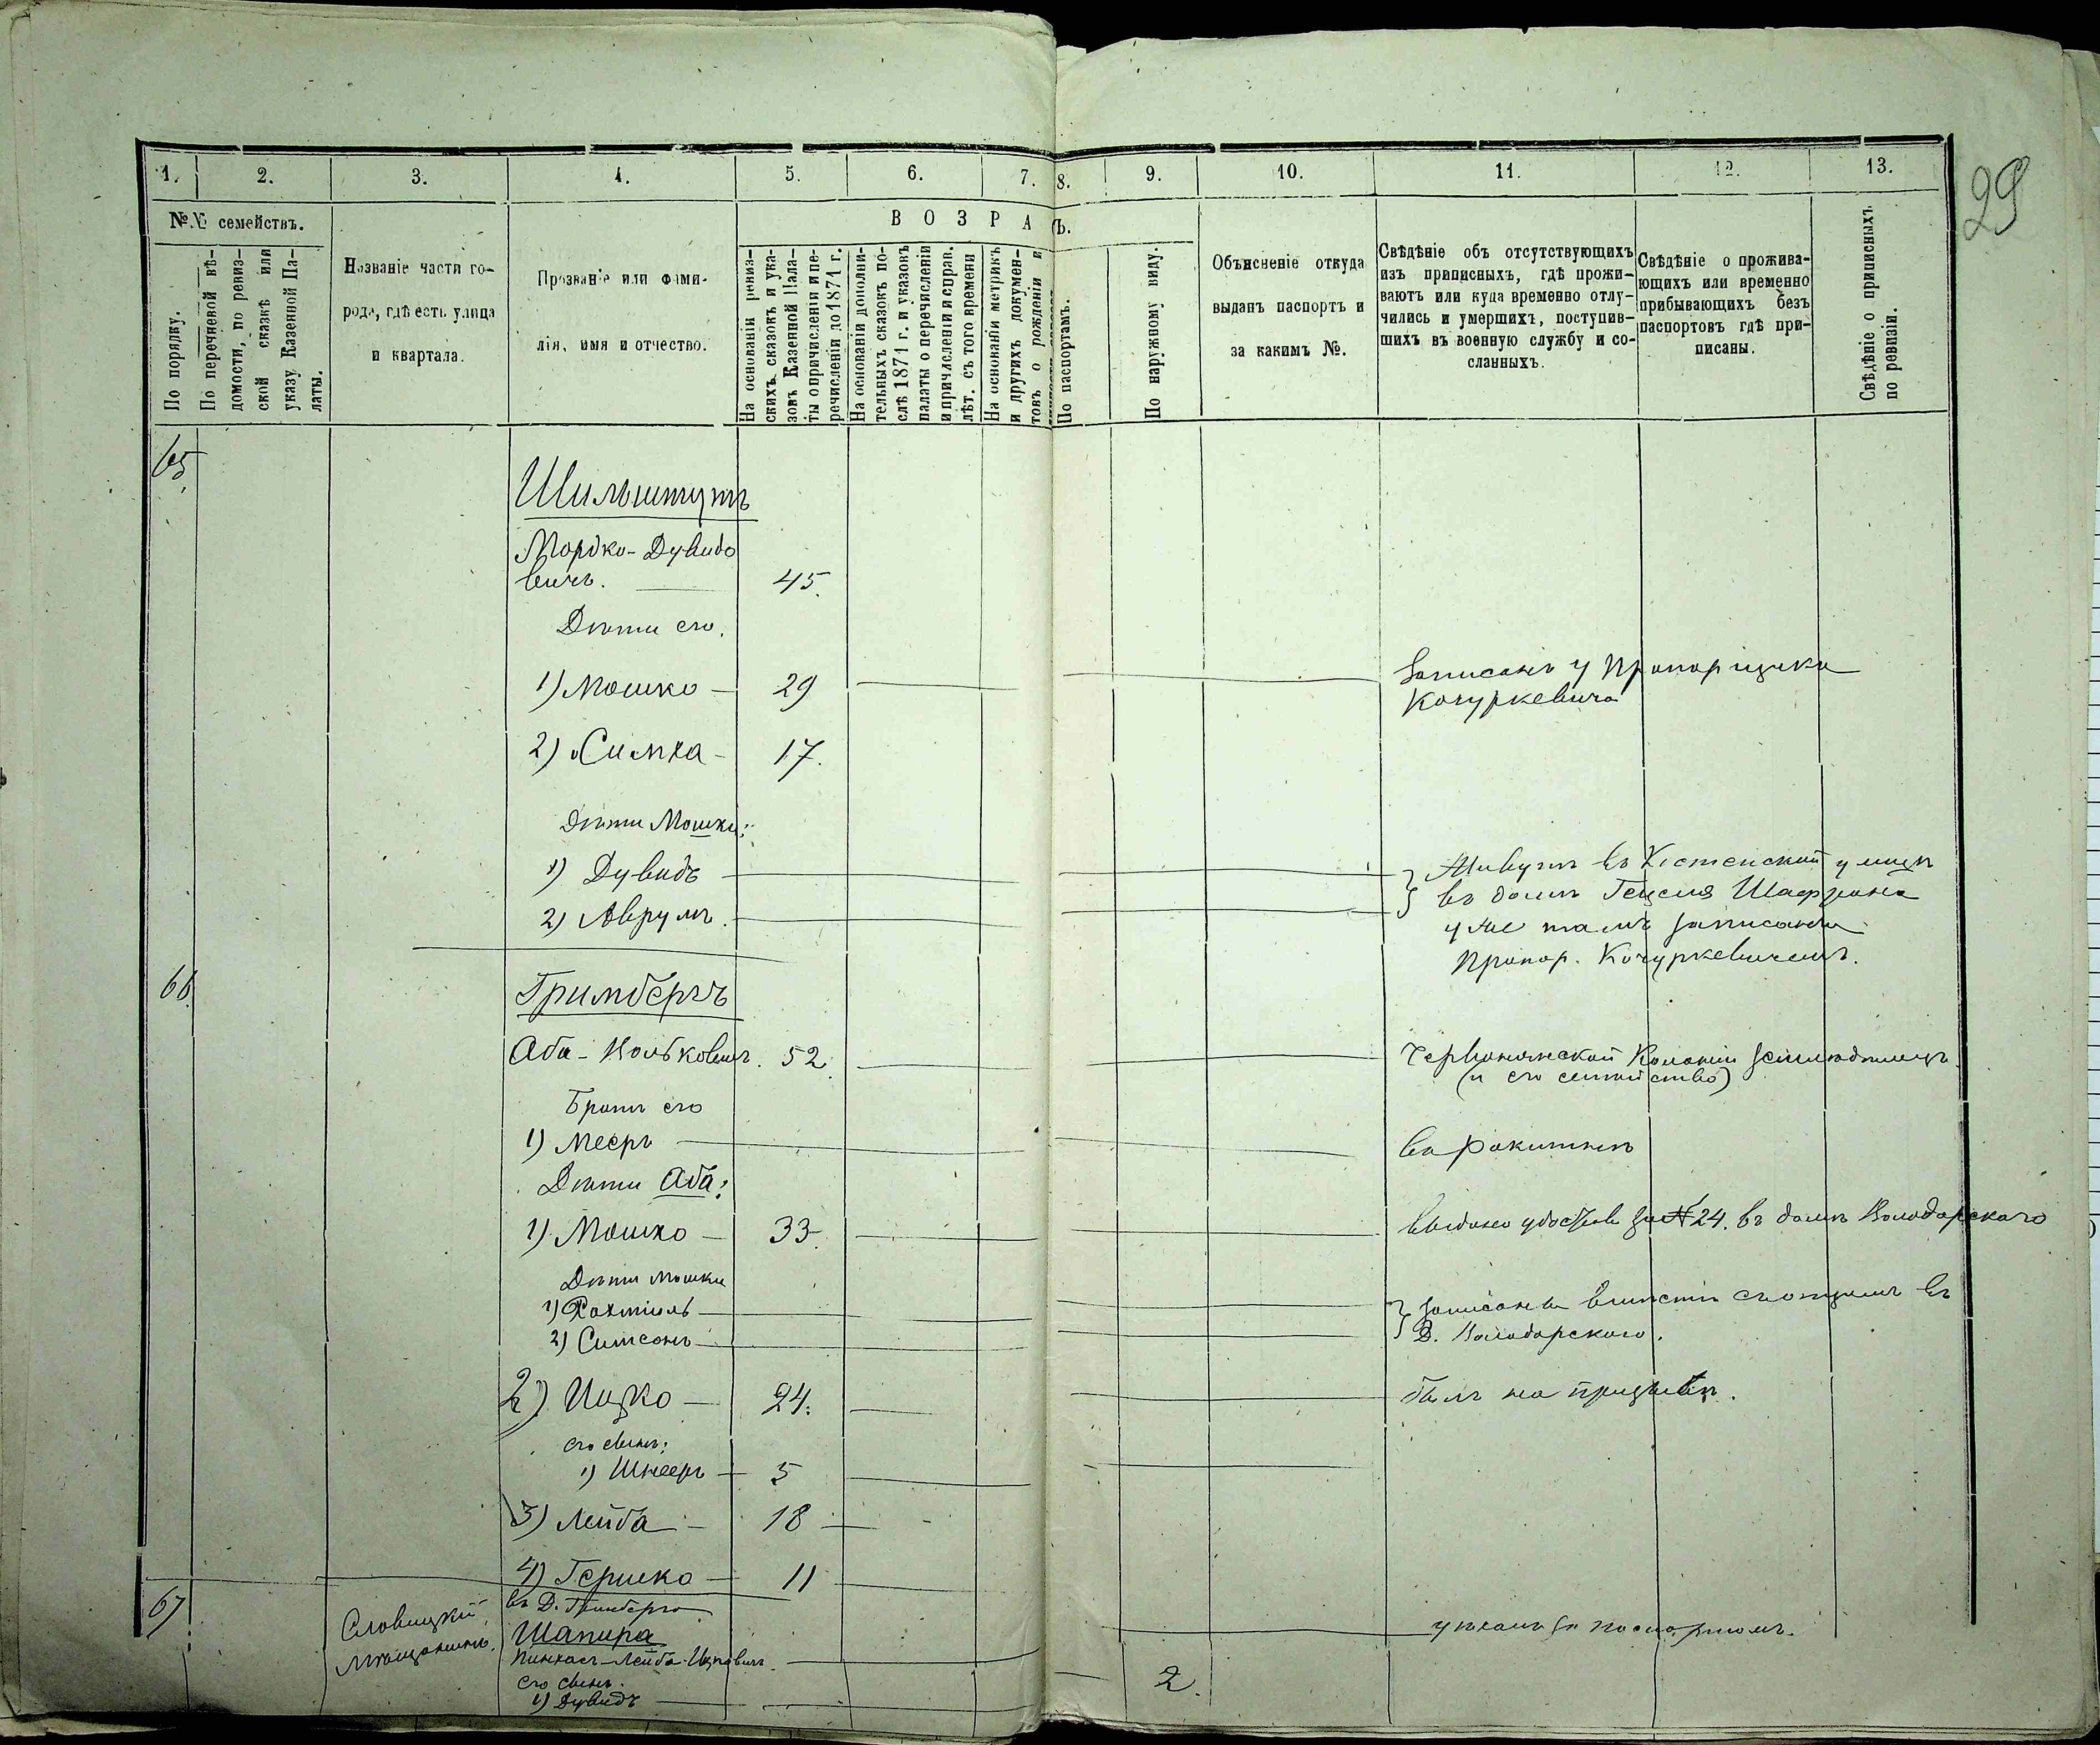 29
1. 2. 3. 4. 5. 6. 7. 8. 9. 10. 11. 12. 13.
№№ семействъ.
По порядку.
По перечневой вѣ-
домости, по ревиз-
ской сказкѣ или
указу Казенной Па-
латы.
Названіе части го-
рода, гдѣ есть улица
и квартала.
Прозваніе или фами-
лія, имя и отчество.
ВОЗРА
Ъ.
На основаніи ревиз-
скихъ сказокъ и ука-
зовъ Казенной Пала-
ты о причисленіи и пе-
речисленіи до 1871 г.
На основаніи дополни-
тельныхъ сказокъ по-
слѣ 1871 г. и указокъ
палаты о перечисленіи
и причисленіи и справ.
лѣт. съ того времени
На основаніи метрикъ
и другихъ докумен-
товъ о рожденіи и
По паспортамъ.
По наружному виду.
Объясненіе откуда
выданъ паспортъ и
за какимъ №.
Свѣдѣніе объ отсутствующихъ
изъ приписныхъ, гдѣ прожи-
ваютъ или куда временно отлу-
чились и умершихъ, поступив-
шихъ въ военную службу и со-
сланныхъ.
Свѣдѣніе о прожива-
ющихъ или временно
прибывающихъ безъ
паспортовъ гдѣ при-
писаны.
Свѣдѣніе о приписныхъ
по ревизіи.
65.
Шильштутъ
Мордко-Дувидо
вичъ. 45.
Дѣти его.
1) Мошко - 29 Записанъ у Прапорщика
Качуркевича
2) Симха - 17.
Дѣти Мошки:
1) Дувидъ Живутъ въ улицѣ
въ домѣ Гецеля
2) Аврумъ.
уже тамъ записаны
Прапор. Качуркевичемъ.
66.
Гримбергъ
Аба - 52. Колоніи земледѣлецъ
(и его семейство)
Братъ его
1) Мееръ въ Ракитнѣ
Дѣти Аба:
1) Мошко - 33. выдано за № 24. въ домѣ Володарскаго
Дѣти Мошки
1) Рахміель записаны вмѣстѣ съ отцомъ въ
2) Симсонъ Д. Володарскаго.
2) Ицко - 24. былъ на призывѣ.
его сынъ:
1) Шнееръ - 5
3) Лейба - 18
4) Гершко - 11
въ Д. Гринберга
67
Словицкій
мѣщанинъ.
Шапира
Пинхасъ-Лейба Ицковичъ уѣхалъ за паспортомъ.
его сынъ. 2.
1) Дувидъ